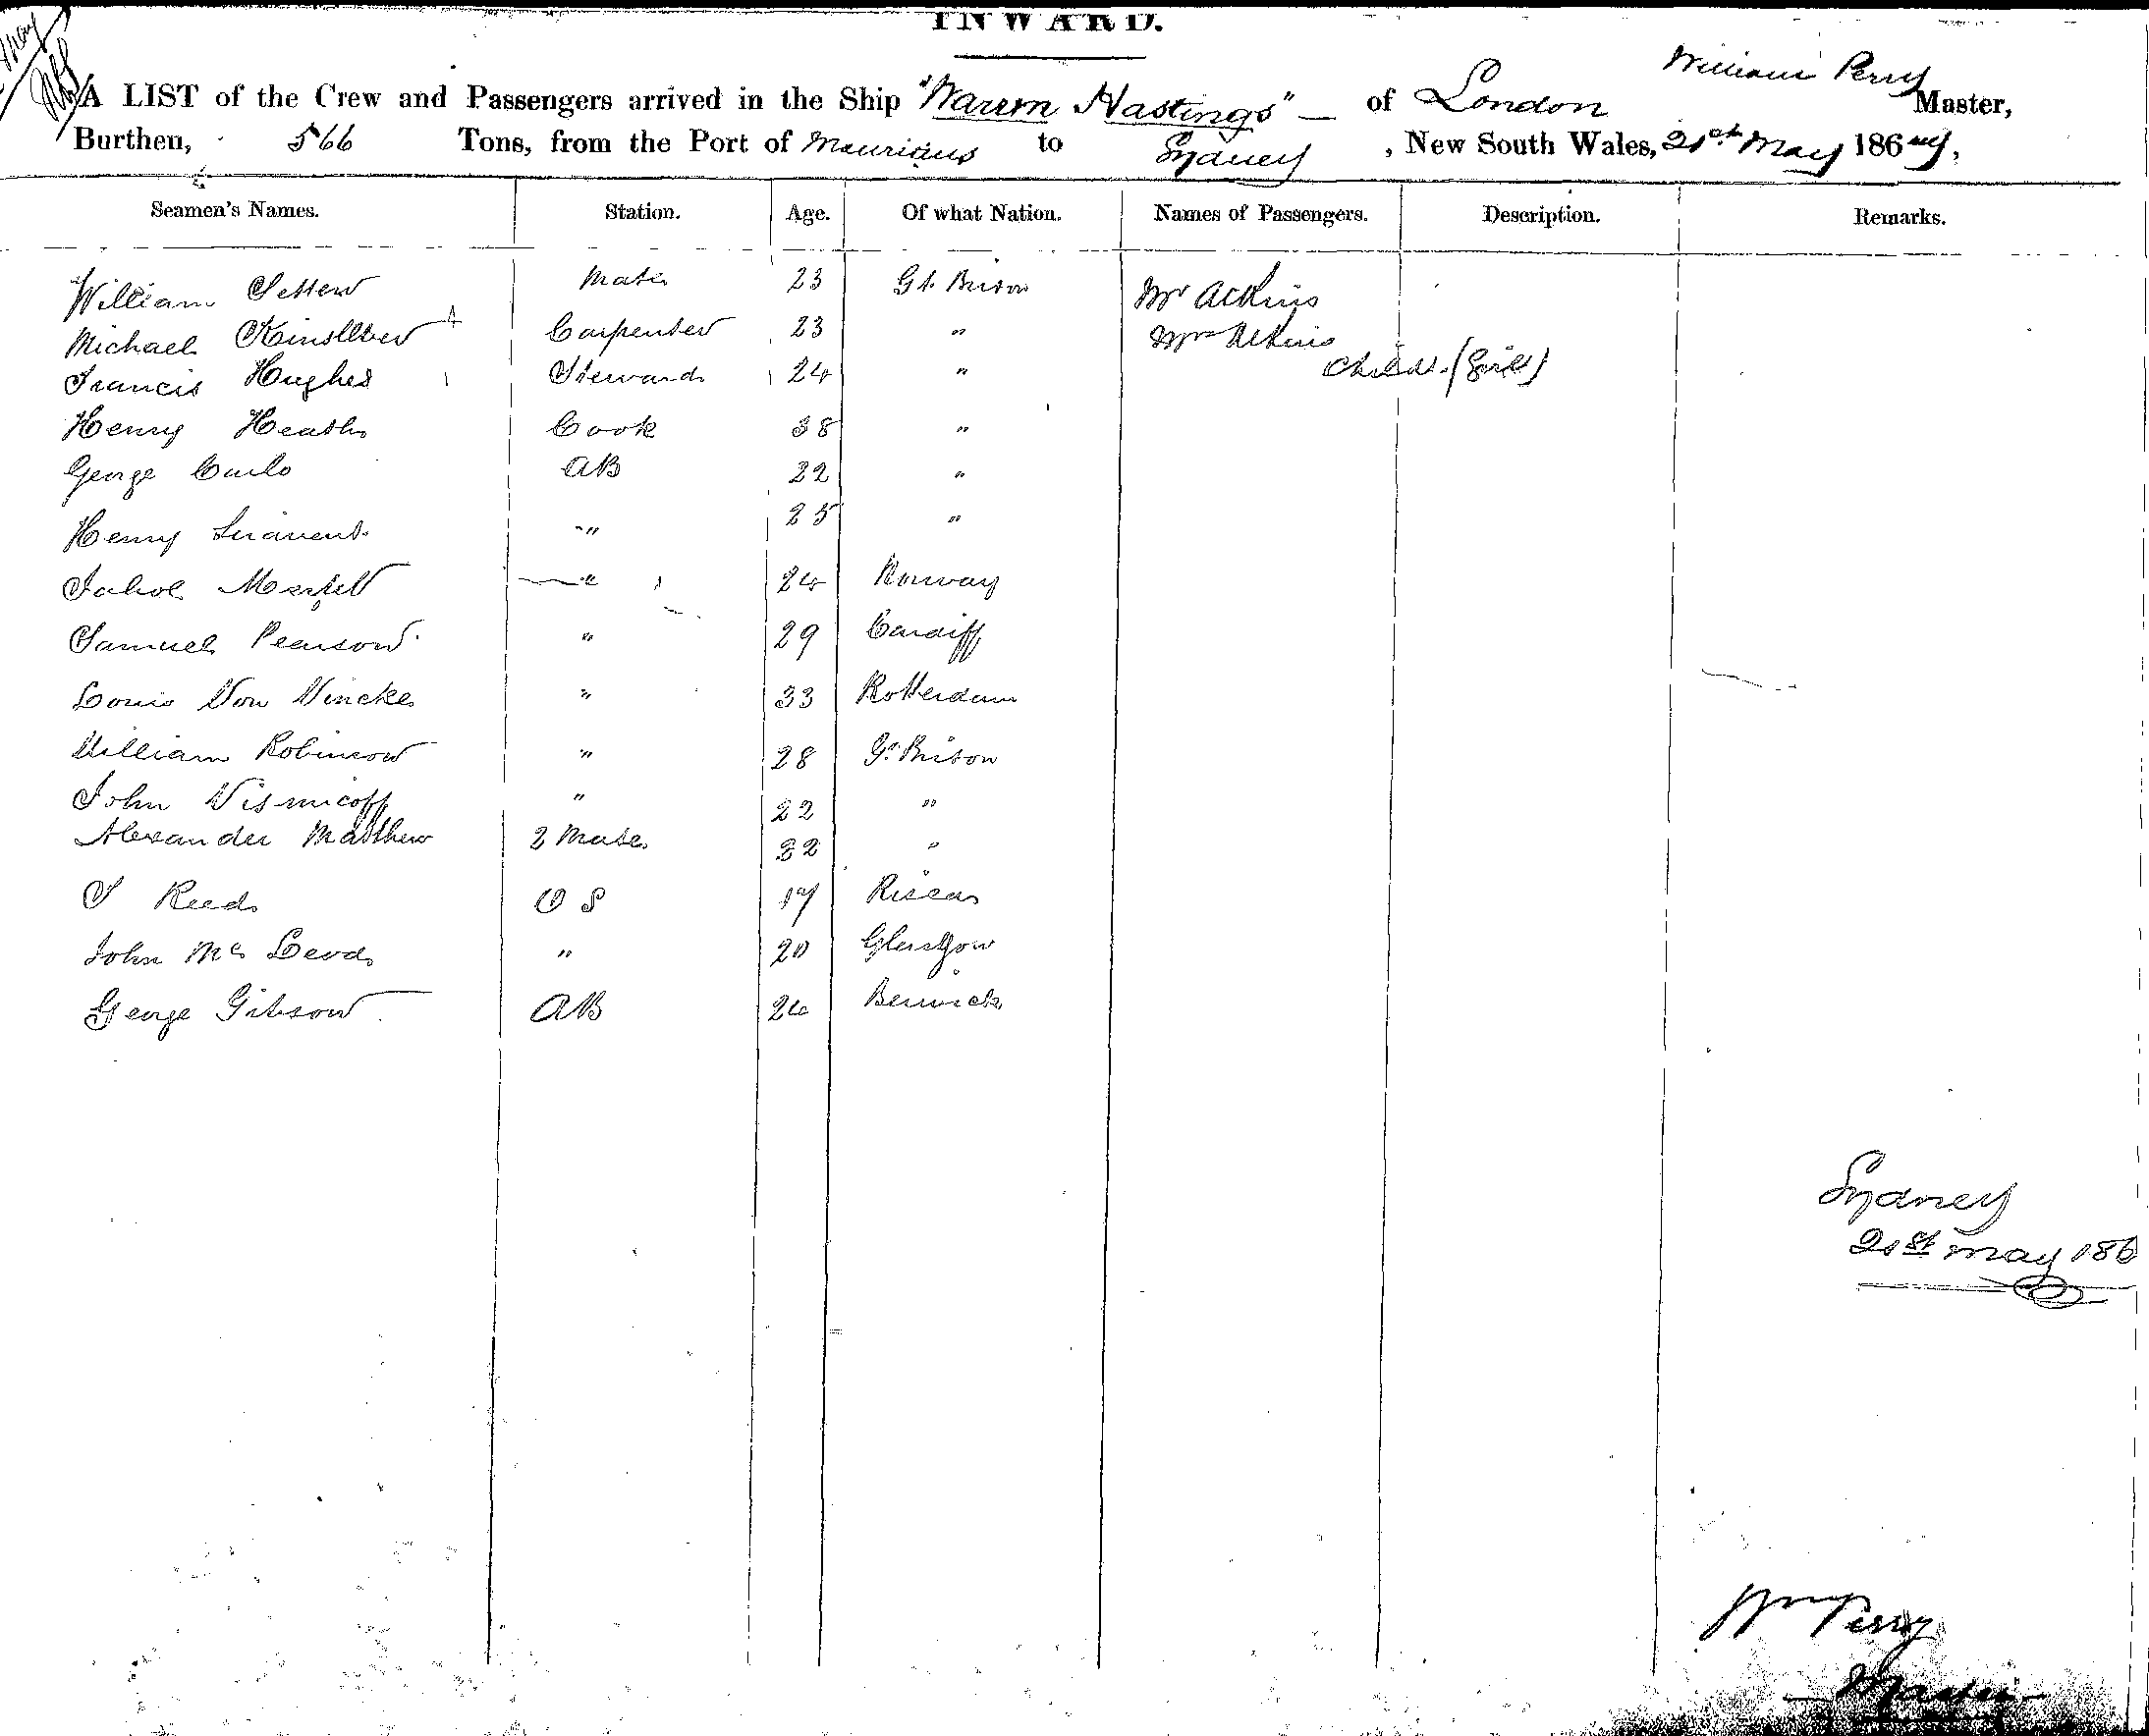 INWARD.
William Perry
A LIST of the Crew and Passengers arrived in the Ship "Warren Hastings" — of London Master,
Burthen, 566 Tons, from the Port of Mauritius to Sydney, New South Wales, 21st May 186
Seamen's Names. Station. Age. Of what Nation. Names of Passengers. Description. Remarks.
William Mate 23 Gt. Briton Mr Atkins
Michael Carpenter 23 " Mrs Atkins
Francis Hughes Steward 24 " Child (Girl)
Henry Heath Cook 38 "
George AB 22 "
Henry " 25 "
" 24 Norway
Samuel Pearson " 29 Cardiff
Louis Von Vincke " 33 Rotterdam
William Robinson " 28 Gt Briton
John " 22 "
Alexander Matthew 2 Mate 22 "
Reed O S 17 Risca
John Mc Leod " 20 Glasgow
George Gibson AB 24 Berwick
Sydney
21st May 186
Wm Perry
Master